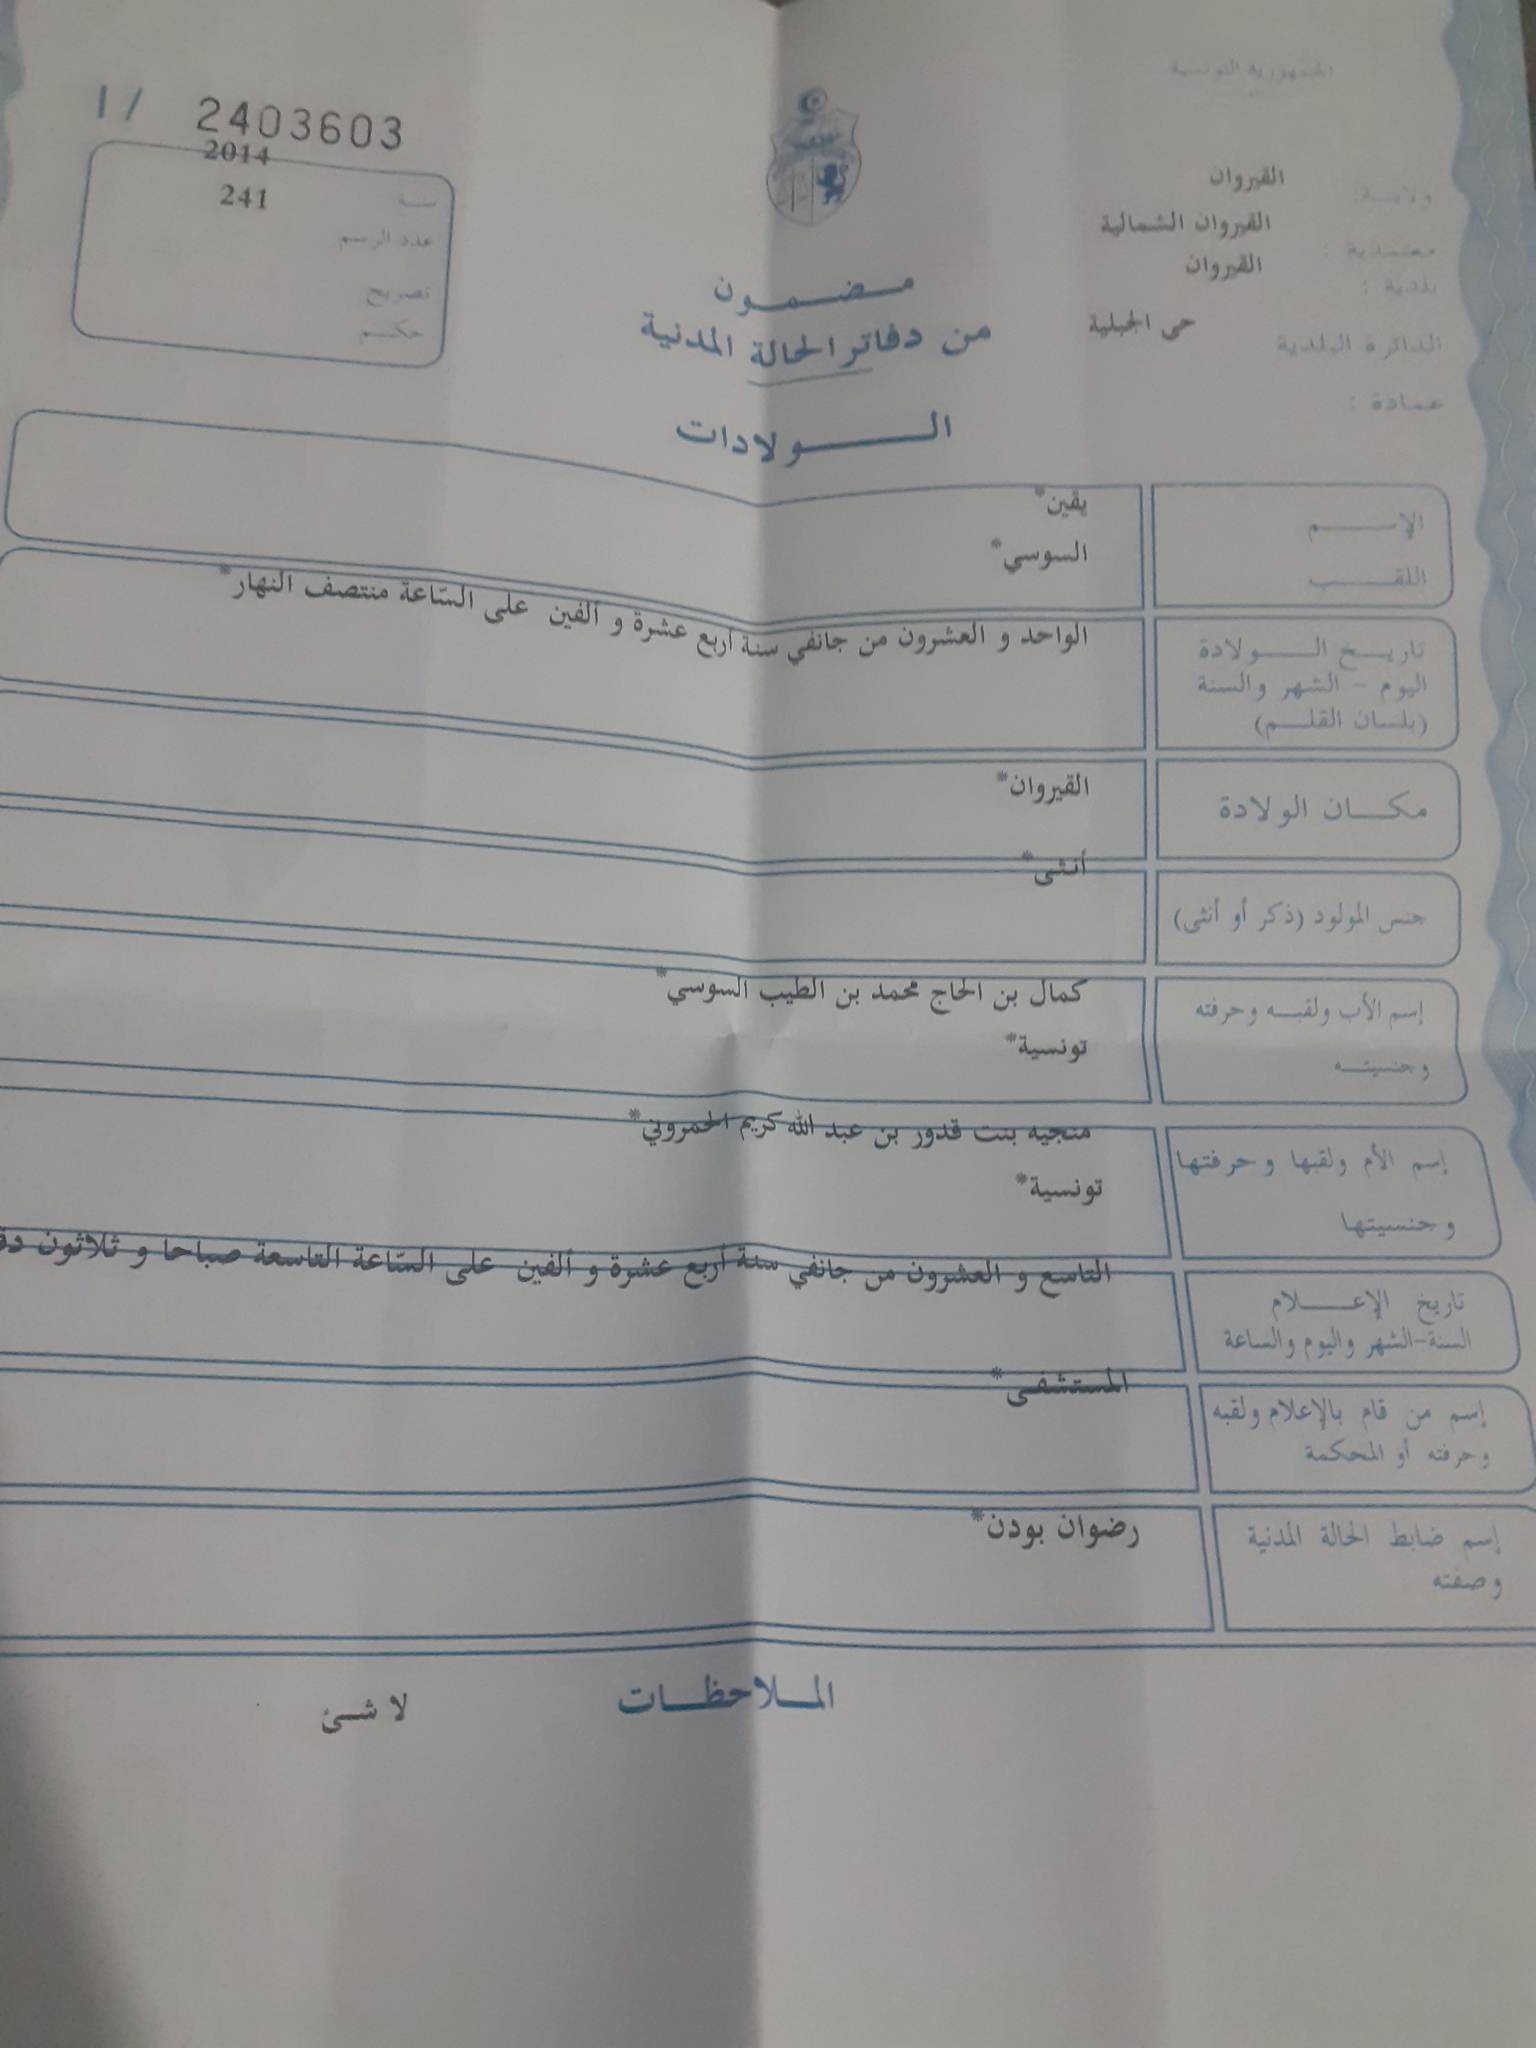 الجمهورية التونسية
ولايـــة القيروان
معتمدية : القيروان الشمالية
بلدية : القيروان
الدائرة البلدية حى الجبلية
عمادة :
1/ 2403603
سنة 2014
عدد الرسم 241
تصريح
حكم
مضمون
من دفاتر الحالة المدنية
الولادات
الإسم يقين*
اللقب السوسي*
تاريخ الولادة
اليوم - الشهر والسنة
(بلسان القلم)
الواحد و العشرون من جانفي سنة أربع عشرة و ألفين على السّاعة منتصف النهار*
مكان الولادة القيروان*
جنس المولود (ذكر أو أنثى) أنثى*
إسم الأب ولقبه وحرفته كمال بن الحاج محمد بن الطيب السوسي*
وجنسيته تونسية*
إسم الأم ولقبها وحرفتها منجيه بنت قدور بن عبد الله كريم الحمروني*
وجنسيتها تونسية*
تاريخ الإعلام
السنة-الشهر واليوم والساعة
التاسع و العشرون من جانفي سنة أربع عشرة و ألفين على السّاعة التاسعة صباحا و ثلاثون
إسم من قام بالإعلام ولقبه
وحرفته أو المحكمة
المستشفى*
إسم ضابط الحالة المدنية
وصفته
رضوان بودن*
الملاحظات
لا شئ